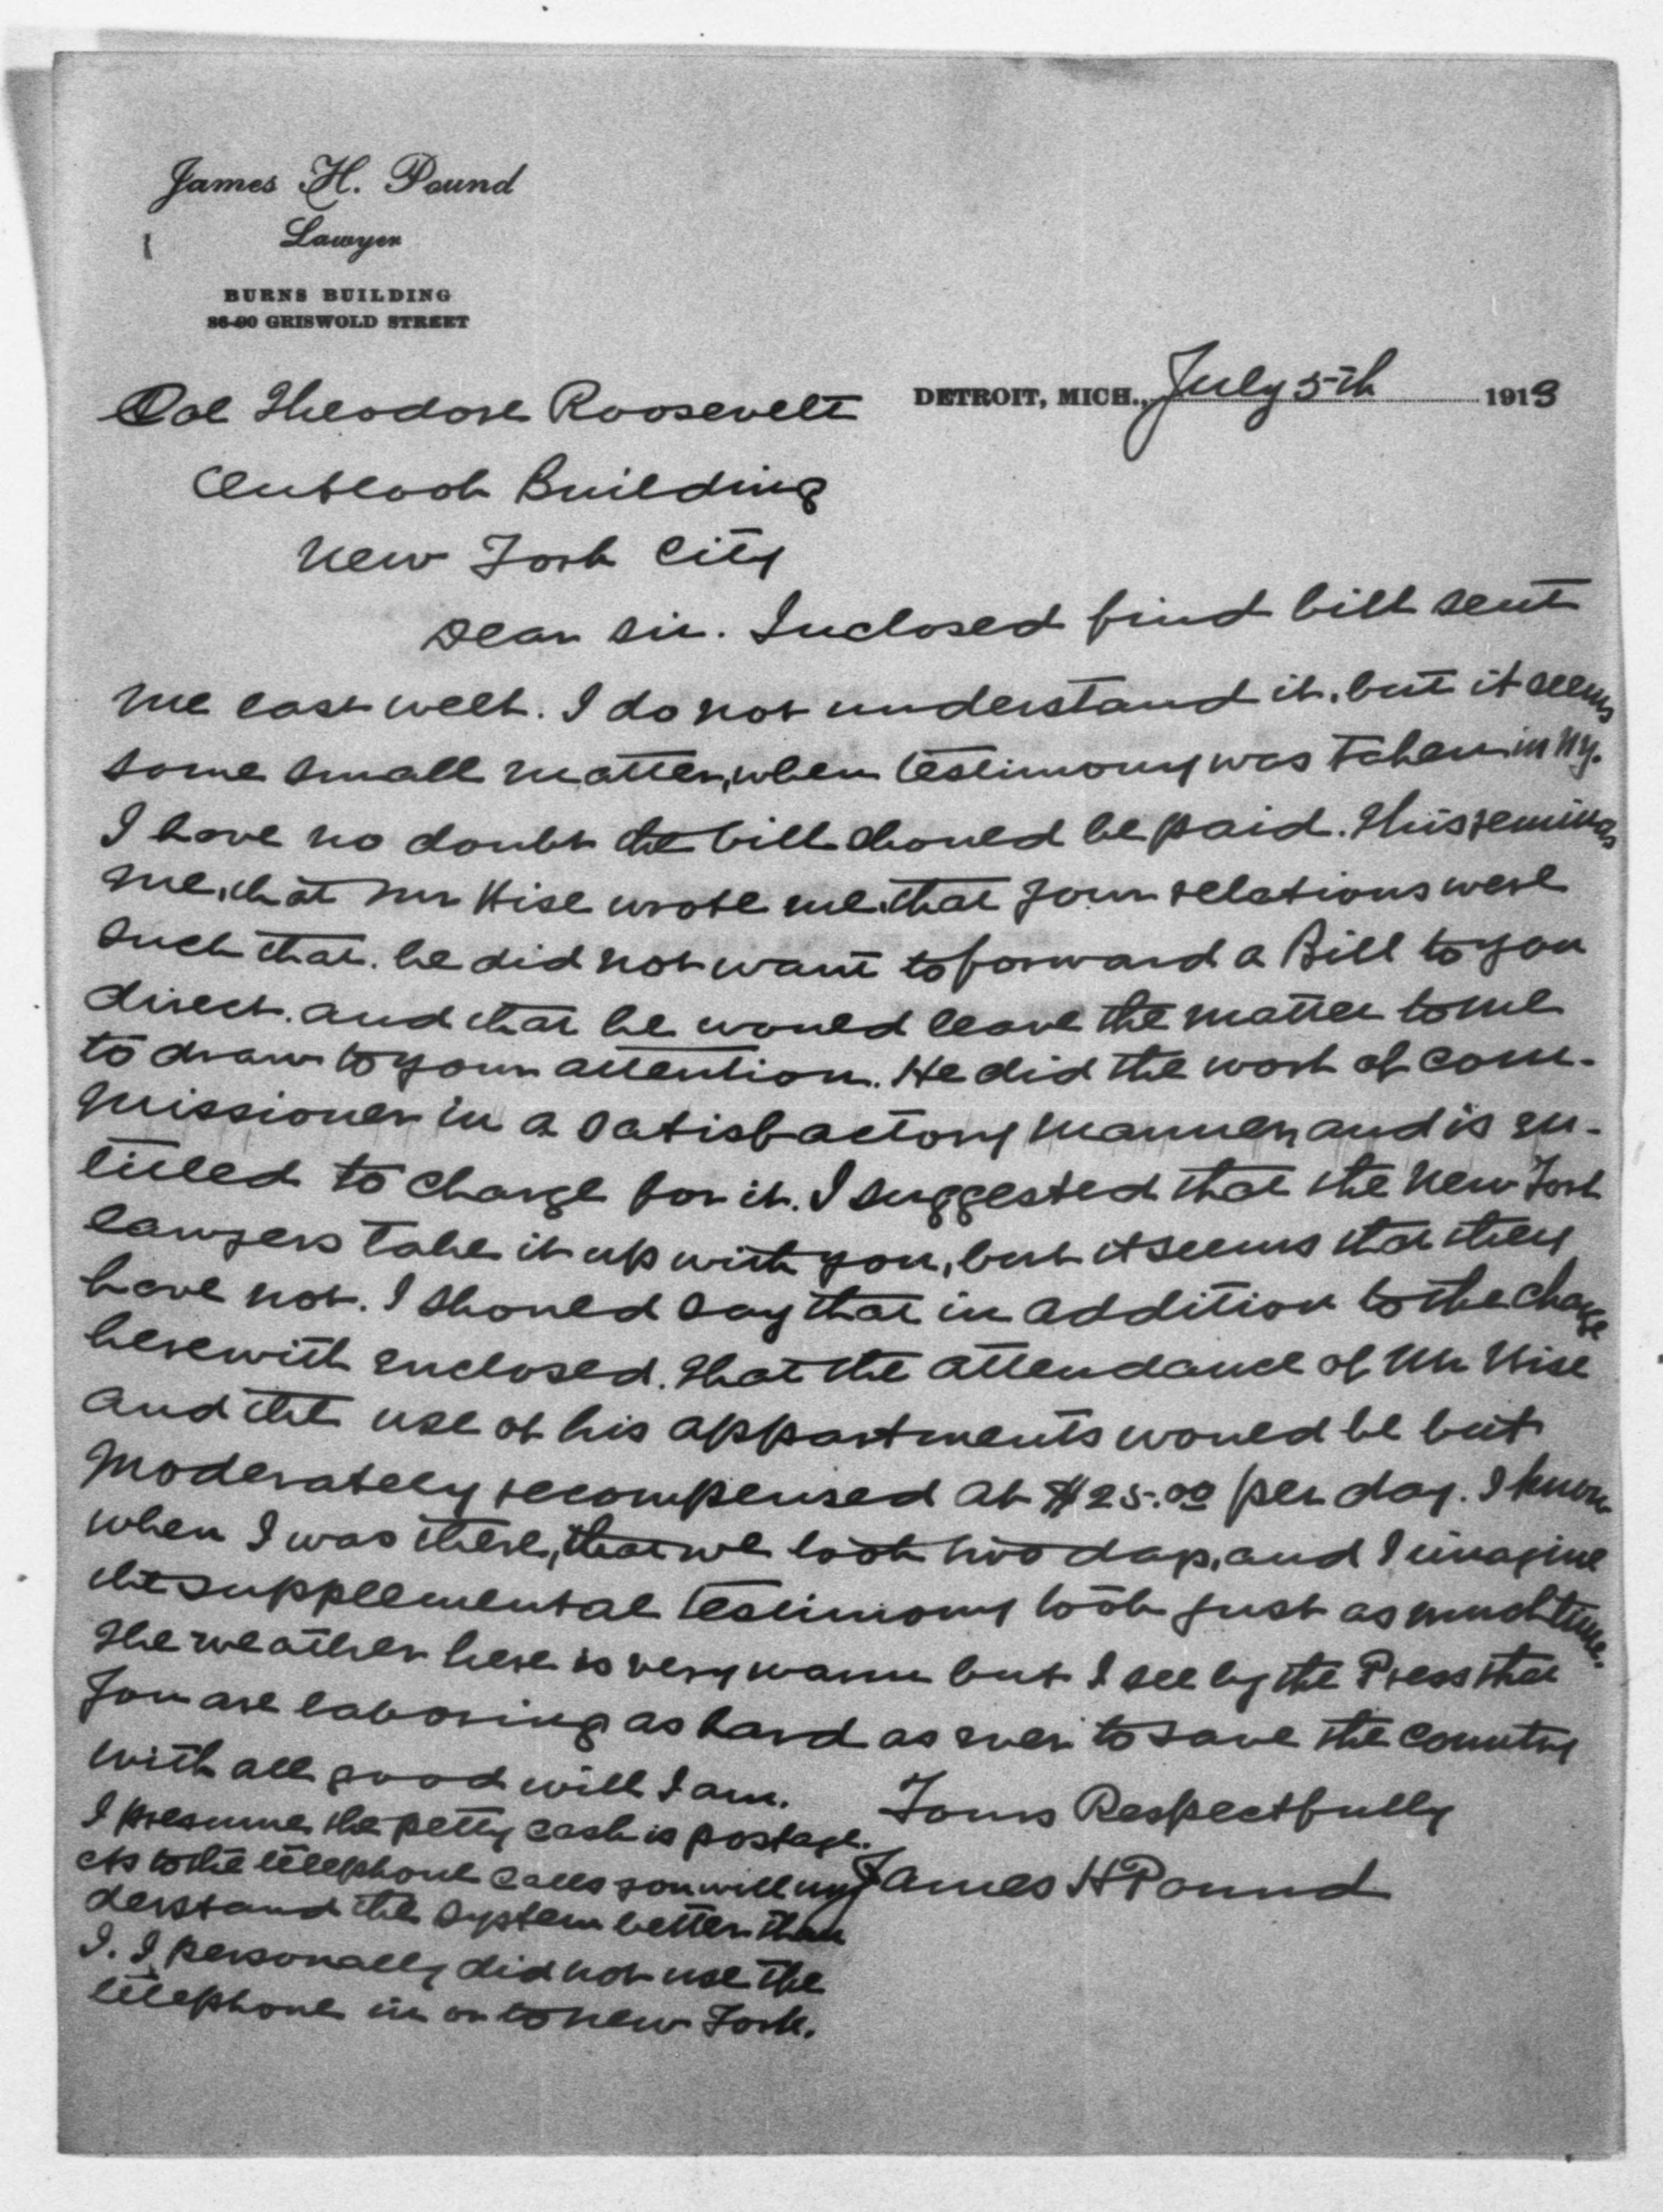 James H. Pound
Lawyer
BURNS BUILDING
86-90 GRISWOLD STREET
DETROIT, MICH., July 5th 1913
Col Theodore Roosevelt
Outlook Building
New York City
Dear sir. Inclosed find bill sent
me last week. I do not understand it, but it seems
some small matter, when testimony was taken in NY.
I have no doubt the bill should be paid. This reminds
me, that Mr Wise wrote me, that your relations were
such that he did not want to forward a Bill to you
direct. and that he would leave the matter to me
to draw to your attention. He did the work of com-
missioner in a satisfactory manner, and is en-
titled to charge for it. I suggested that the New York
lawyers take it up with you, but it seems that they
have not. I should say that in addition to the charge
herewith enclosed. that the attendance of Mr Wise
and the use of his appartments would be but
moderately recompensed at $25.00 per day. I know
when I was there, that we took two days, and I imagine
the supplemental testimony took just as much time.
The weather here is very warm but I see by the Press that
you are laboring as hard as ever to save the country
with all good will I am.
Yours Respectfully
James H Pound
I presume the petty cash is postage.
As to the telephone calls you will un
derstand the system better than
I. I personally did not use the
telephone in or to New York.